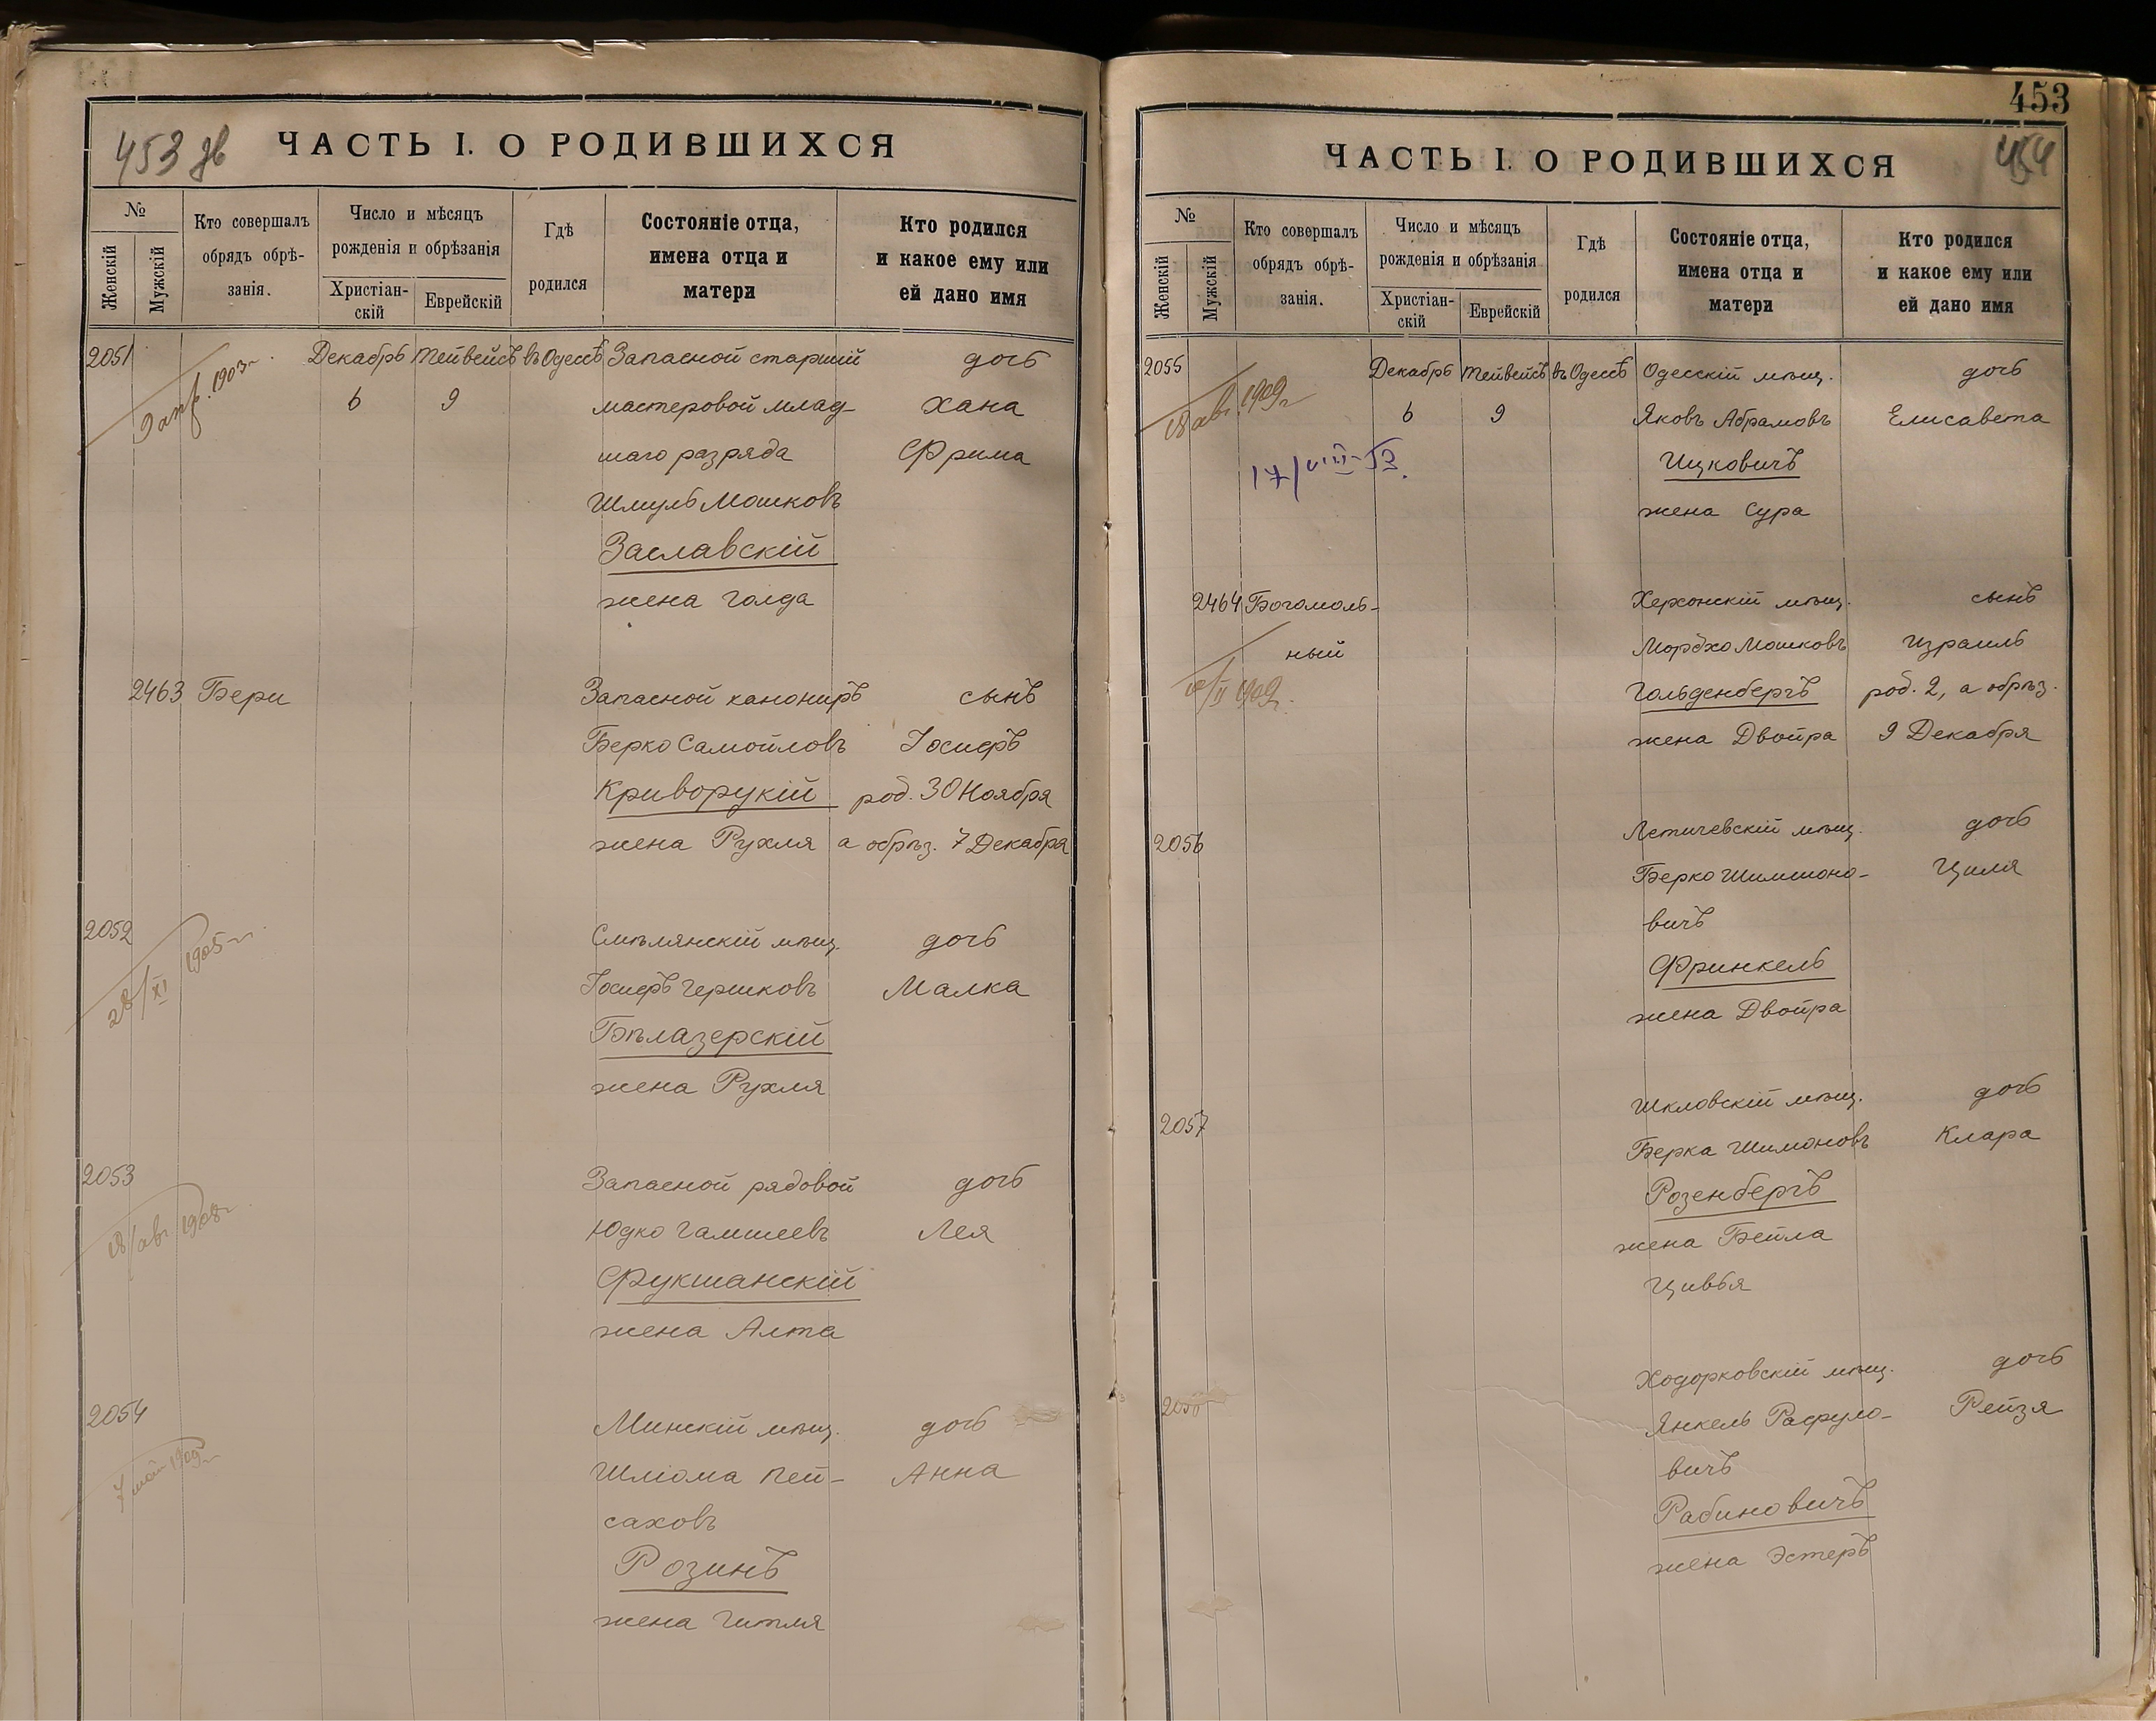 453 зв
ЧАСТЬ I. О РОДИВШИХСЯ
№
Женскій
Мужскій
Кто совершалъ
обрядъ обрѣ-
занія.
Число и мѣсяцъ
рожденія и обрѣзанія
Христіан-
скій
Еврейскій
Гдѣ
родился
Состояніе отца,
имена отца и
матери
Кто родился
и какое ему или
ей дано имя
2051 Декабрь Тейвейсъ въ Одессѣ Запасной старшій дочь
6 9 мастеровой млад- Хана
шаго разряда Фрима
Шмуль Мошковъ
Заславскій
жена Голда
2463 Бери Запасной канониръ сынъ
Берко Самойловъ Іосифъ
Криворукій род. 30 Ноября
жена Рухля а обрѣз. 7 Декабря
2052 Смѣлянскій мѣщ. дочь
28/XI 1905 г.
Іосифъ Гершковъ Малка
Бѣлазерскій
жена Рухля
2053 Запасной рядовой дочь
18/авг 1908 г.
Юдко Гамшеевъ Лея
Фукшанскій
жена Алта
2054 Минскій мѣщ. дочь
7 мая 1909 г.
Шліома Пей- Анна
саховъ
Розинъ
жена Гитля
453
454
ЧАСТЬ I. О РОДИВШИХСЯ
№
Женскій
Мужскій
Кто совершалъ
обрядъ обрѣ-
занія.
Число и мѣсяцъ
рожденія и обрѣзанія
Христіан-
скій
Еврейскій
Гдѣ
родился
Состояніе отца,
имена отца и
матери
Кто родился
и какое ему или
ей дано имя
2055 Декабрь Тейвейсъ въ Одессѣ Одесскій мѣщ. дочь
18 авг. 1909 г.
6 9 Яковъ Абрамовъ Елисавета
Ицковичъ
жена Сура
2464 Богомоль- Херсонскій мѣщ. сынъ
ный Мордхо Мошковъ Израиль
Гольденбергъ род. 2, а обрѣз.
жена Двойра 9 Декабря
2056 Летичевскій мѣщ. дочь
Берко Шимшоно- Циля
вичъ
Фринкель
жена Двойра
2057 Шкловскій мѣщ. дочь
Берка Шимоновъ Клара
Розенбергъ
жена Бейла
Цивья
Ходорковскій мѣщ. дочь
Янкель Рафуло- Рейзя
вичъ
Рабиновичъ
жена Эстеръ